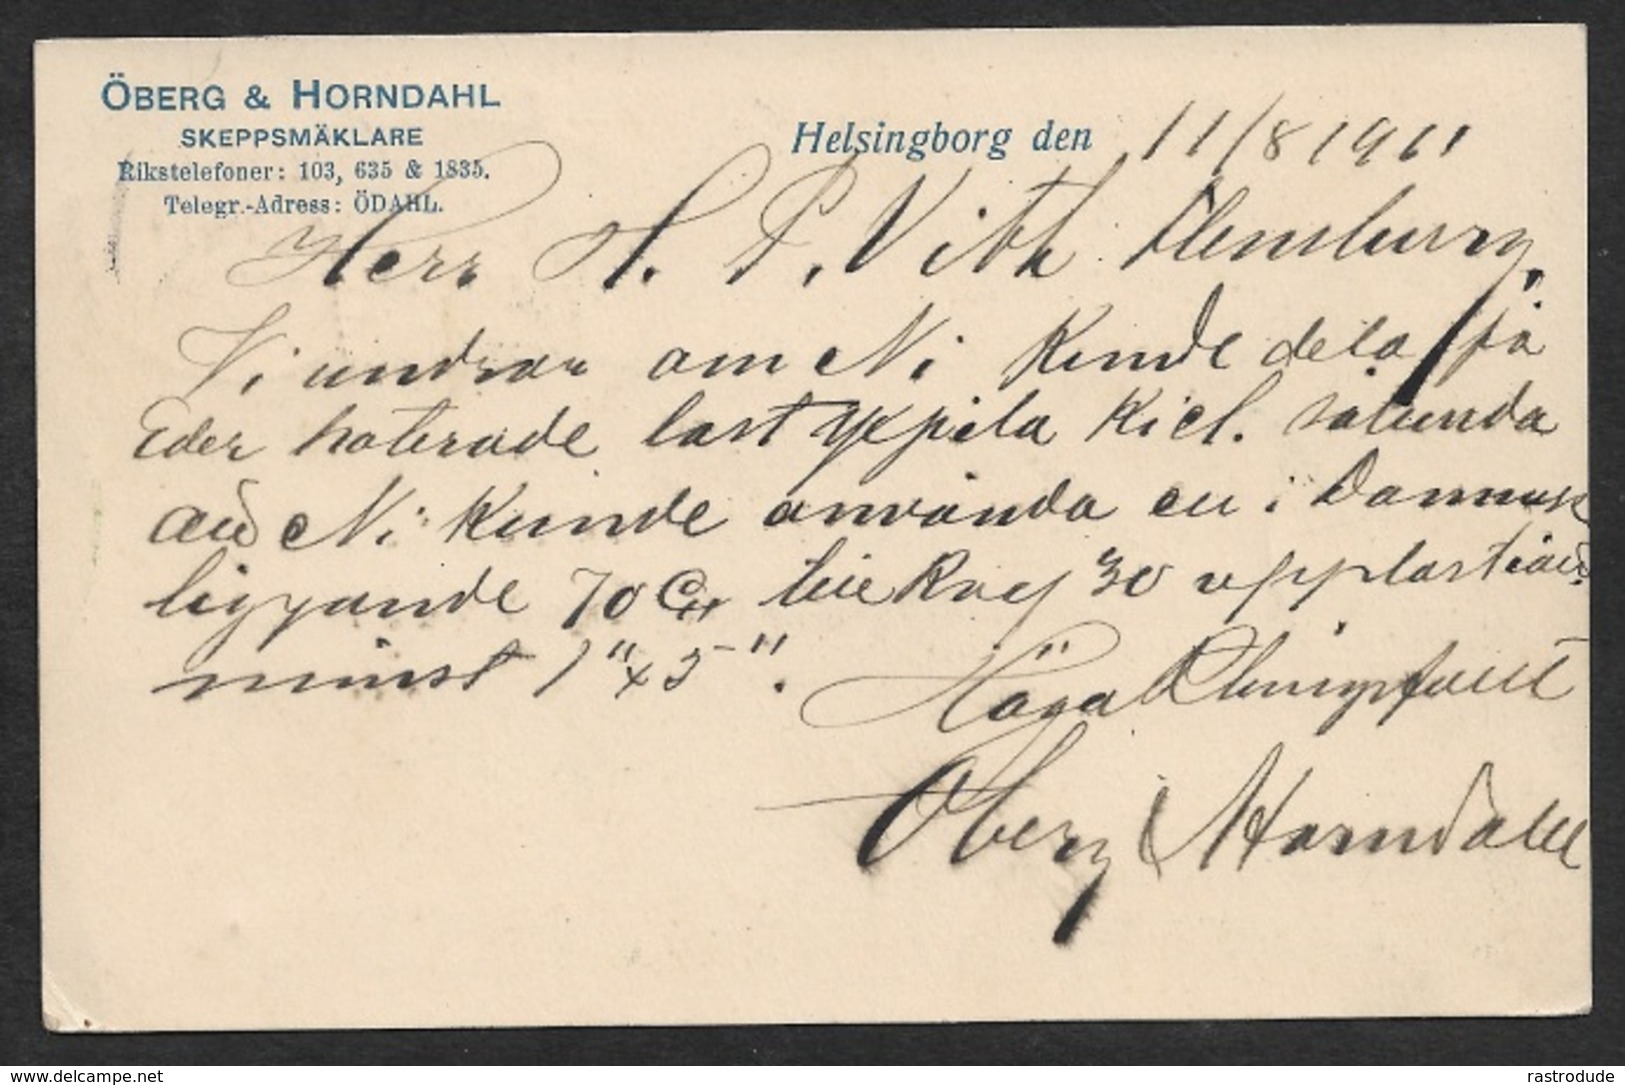 ÖBERG & HORNDAHL
SKEPPSMÄKLARE
Rikstelefoner: 103, 635 & 1835.
Telegr.-Adress: ÖDAHL.
Helsingborg den 11/8 1911
Herr H. P. Vith Flensburg.
Vi undrar om Ni kunde dela på
Eder last Kiel. sålunda
Ni kunde använda en i Danmark
liggande 70 30
minst 1" x 5".
Högaktningsfullt
Öberg & Horndahl
www.delcampe.net
rastrodude